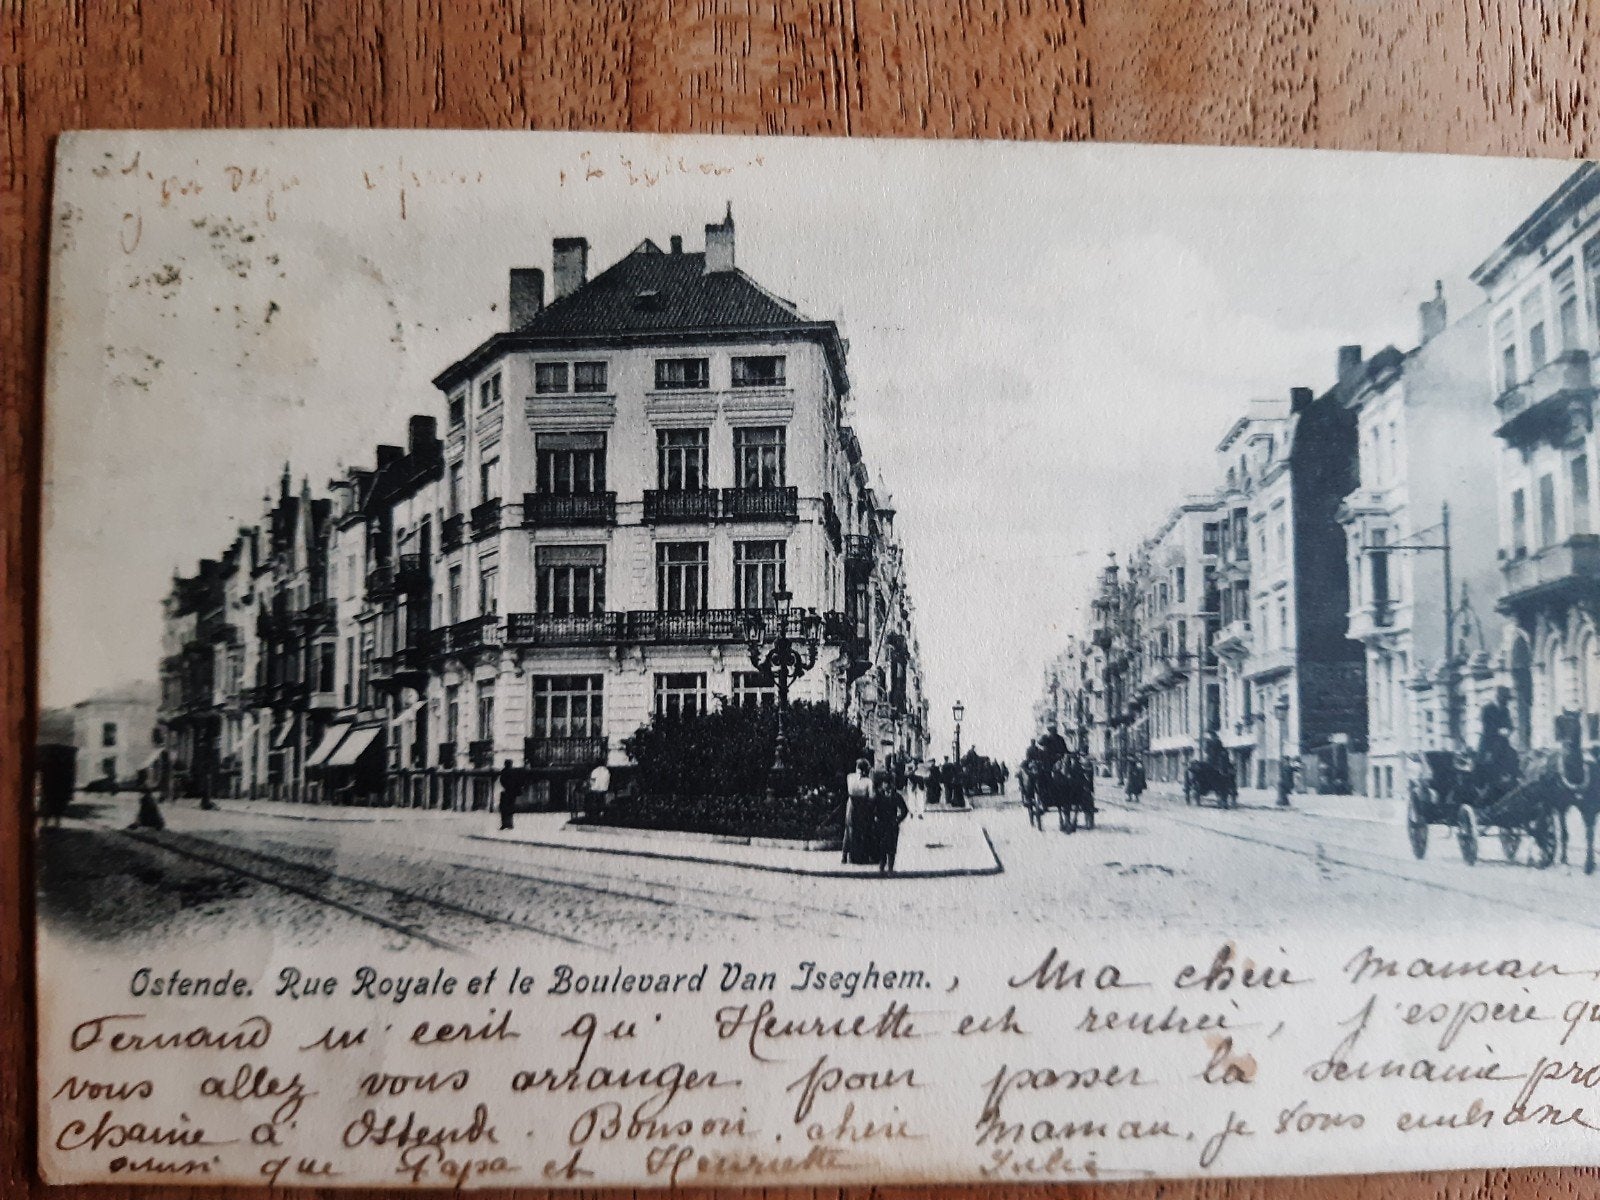 Ostende. Rue Royale et le Boulevard Van Iseghem., Ma chère Maman,
Fernand m'écrit qu' Henriette est rentrée, j'espère qu
vous allez vous arranger pour passer la semaine pro
chaine à Ostende. Bonsoir, chère Maman, je vous embrasse
ainsi que Papa et Henriette Julie